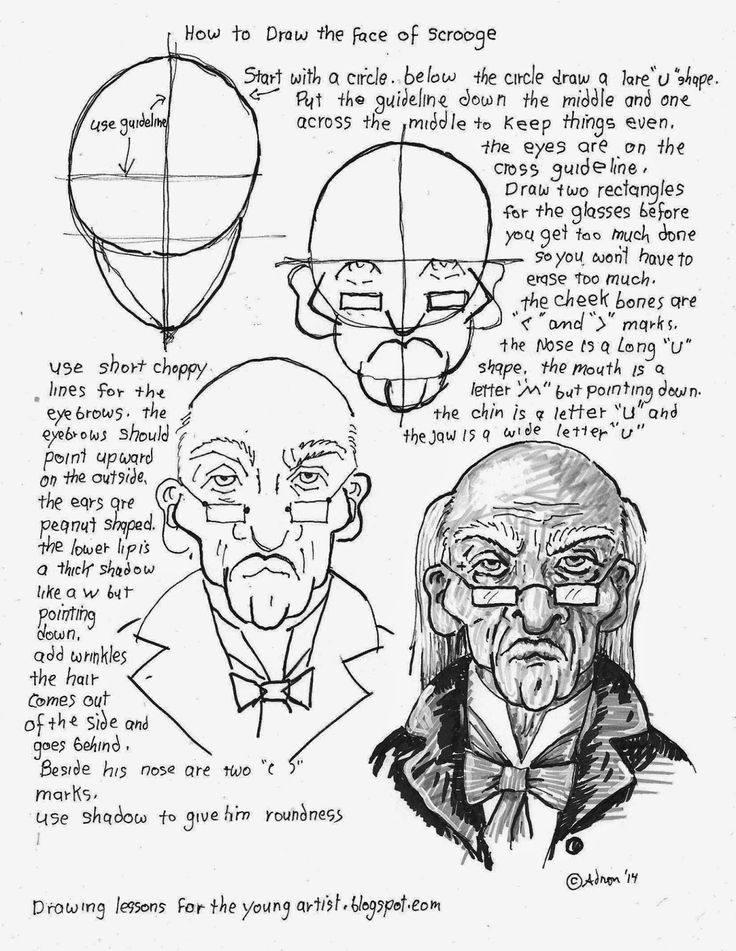 How to Draw the face of scrooge
Start with a circle. below the circle draw a lare "U" shape.
Put the guideline down the middle and one
across the middle to keep things even.
use guideline
the eyes are on the
cross guideline.
Draw two rectangles
for the glasses before
you get too much done
so you won't have to
erase too much.
the cheek bones are
"<" and ">" marks.
the Nose is a Long "U"
shape. the mouth is a
letter "M" but pointing down.
the chin is a letter "U" and
the jaw is a wide letter "U"
use short choppy
lines for the
eyebrows. the
eyebrows should
point upward
on the outside.
the ears are
peanut shaped.
the lower lip is
a thick shadow
like a w but
pointing
down.
add wrinkles
the hair
comes out
of the side and
goes behind.
Beside his nose are two "( )"
marks.
use shadow to give him roundness
© Adron '14
Drawing lessons for the young artist.blogspot.com